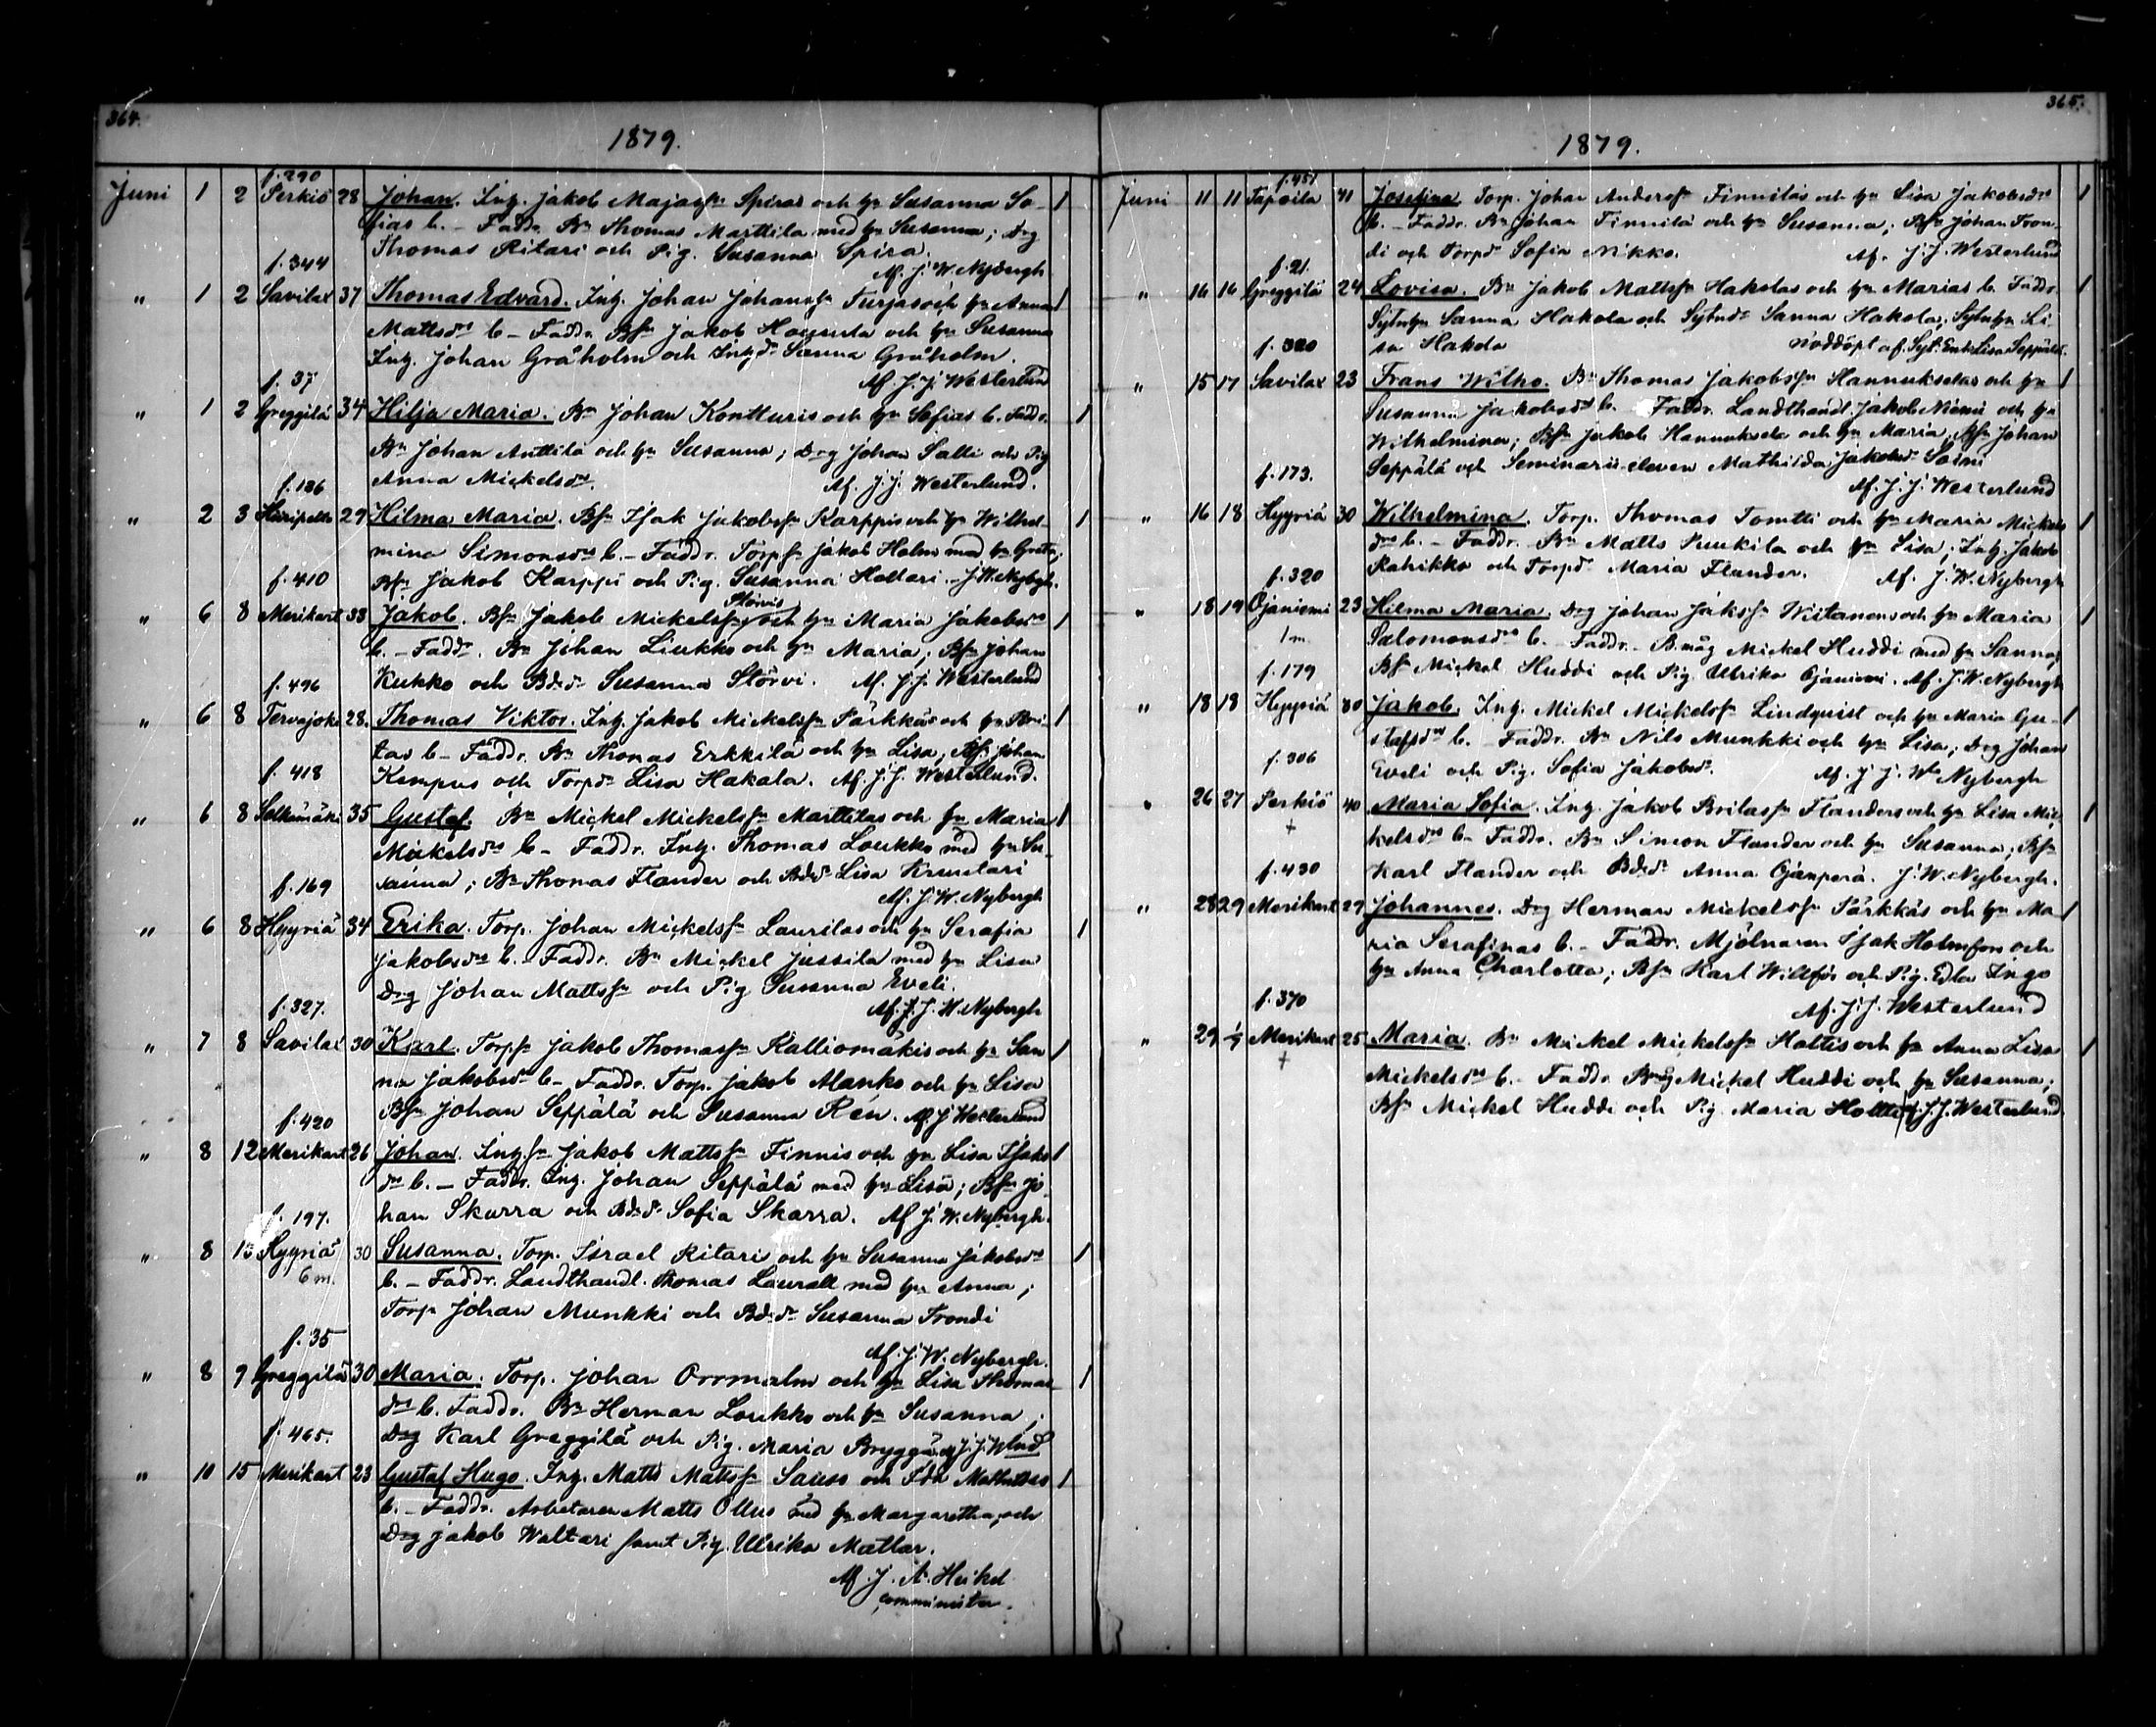 364.
1879.
f. 290
Juni 1 2 Perkiö 28 Johan. Inh. Jakob Majass Spiras och hu Susanna So- 1
fias b. - Faddr. Bn Thomas Marttila med hu Susanna; Drg
Thomas Ritari och Pig. Susanna Spira.
f. 344 Af. J. W. Nybergh
" 1 2 Savilax 37 Thomas Edvard. Inh. Johan Johanss Turjas och hu Anna 1
Mattsdrs b - Faddr. Bs Jakob och hu Susanna
Inh. Johan Gråholm och Inhdr Sanna Gråholm.
f. 37 Af. J. J. Westerlund
" 1 2 Greggilä 34 Hilja Maria. Bn Johan Kontturis och hu Sofias b. Faddr. 1
Bn Johan Anttila och hu Susanna; Drg Johan Salli och Pig
Anna Mickelsdr.
f. 186 Af. J. J. Westerlund.
" 2 3 29 Hilma Maria. Bs Isak Jakobss Karppis och hu Wilhel- 1
mina Simonsdrs b. - Faddr. Torps Jakob Holm med hu Greta;
f. 410 Bs Jakob Karppi och Pig. Susanna Hattari. J. W. Nybgh.
Störvis
" 6 8 Merikart 38 Jakob. Bs Jakob Mickelss och hu Maria Jakobsdrs 1
b. - Faddr. Bn Johan Liukko och hu Maria; Bs Johan
f. 496 Kukko och Bdr Susanna Störvi. Af. J. J. Westerlund
" 6 8 Tervajoki 28. Thomas Viktor. Inh. Jakob Mickelss Pärkkäs och hu Bri- 1
tas b - Faddr. Bn Thomas Erkkilä och hu Lisa; Bs Johan
f. 418 Kempus och Torpdr Lisa Hakala. Af. J. J. Westerlund.
" 6 8 Selkämäki 35 Gustaf. Bn Mickel Mickelss Marttilas och hu Maria 1
Mickelsdrs b - Faddr. Inh. Thomas Loukko med hu Su-
f. 169 sanna; Bn Thomas Flander och Bdr Lisa
Af. J. W. Nybergh
" 6 8 Hyyriä 34 Erika. Torp. Johan Mickelss Laurilas och hu Serafia 1
Jakobsdrs b. - Faddr. Bn Mickel Jussila med hu Lisa
Drg Johan Mattss och Pig Susanna Eveli.
f. 327. Af. J. J. W. Nybergh
" 7 8 Savilax 30 Karl. Torps Jakob Thomass Kalliomäkis och hu San- 1
na Jakobsdrs b - Faddr. Torp. Jakob Alanko och hu Lisa
f. 420 Bs Johan Seppälä och Susanna Rén. Af. J Westerlund
" 8 12 Merikart 26 Johan. Inhs Jakob Mattss Finnis och hu Lisa Isaks 1
drs b. - Faddr. Inh. Johan Seppälä med hu Lisa; Bs Jo-
f. 197. han Skarra och Bdr Sofia Skarra. Af J. W. Nybergh.
" 8 13 Hyyriä 30 Susanna. Torp. Israel Ritaris och hu Susanna Jakobsdrs 1
6 m. b. - Faddr. Landthandl. Thomas Laurell med hu Anna;
Torps Johan Munkki och Bdr Susanna Trondi
f. 35 Af. J. W. Nybergh.
" 8 9 Greggilä 30 Maria. Torp. Johan Orrmalm och hu Lisa Thomas 1
drs b. Faddr. Bn Herman Loukko och hu Susanna;
f. 465. Drg Karl Greggilä och Pig. Maria Bryggäri J. J. Wlud
" 10 15 Merikart 23 Gustaf Hugo. Inh. Matts Mattss Sauso och Ida Mathildas 1
b. - Faddr. Arbetaren Matts Ollus med hu Margaretha, och
Drg Jakob Waltari samt Pig. Ulrika Mattar.
Af. J. A. Heikel
comminister.
365.
1879.
f. 451
Juni 11 11 Tapoila 41 Josefina Torp. Johan Anderss Finnilas och hu Lisa Jakobsdrs 1
b. - Faddr. Bn Johan Finnila och hu Susanna; Bs Johan Tron-
di och Torpdr Sofia Nikko. Af. J. J. Westerlund
f. 21.
" 16 16 Greggilä 24 Lovisa. Bn Jakob Mattss Hakolas och hu Marias b. Faddr. 1
Sytnhu Sanna Hakola och Sytndr Sanna Hakola; Sytnhu Li-
f. 320 sa Hakola nöddöpt af. Syt. Enk. Lisa Seppälä.
" 15 17 Savilax 23 Frans Wilho. Bn Thomas Jakobss Hannukselas och hu 1
Susanna Jakobsdrs b. Faddr. Landthandl. Jakob Niemi och hu
Wilhelmina; Bs Jakob Hannuksela och hu Maria, Bs Johan
f. 173. Seppälä och Seminarii-eleven Mathilda Jakobsdr Soini
Af. J. J. Westerlund
" 16 18 Hyyriä 30 Wilhelmina. Torp. Thomas Tomtti och hu Maria Mickels 1
drs b. - Faddr. Bn Matts Puukila och hu Lisa; Inh. Jakob
f. 320 Rahikko och Torpdr Maria Flander. Af. J. W. Nybergh
" 18 19 Ojaniemi 23 Hilma Maria. Drg Johan Jakss Wistanens och hu Maria 1
1 m. Salomonsdrs b. - Faddr. - B.måg Mickel Huddi med hu Sanna;
f. 179 Bs Mickel Huddi och Pig. Ulrika Ojaniemi. Af. J. W. Nybergh
" 18 18 Hyyriä 30 Jakob. Inh. Mickel Mickelss Lindquist och hu Maria Gu- 1
stafsdrs b. - Faddr. Bn Nils Munkki och hu Lisa; Drg Johan
f. 306 Eveli och Pig. Sofia Jakobsdr. Af. J. J. W. Nybergh
" 26 27 Perkiö 40 Maria Sofia. Inh. Jakob Brilass Flanders och hu Lisa Mic- 1
+ kelsdrs b - Faddr. Bn Simon Flander och hu Susanna; Bs
f. 430 Karl Flander och Bdr Anna Ojanperä. J. W. Nybergh.
" 28 29 Merikart 27 Johannes. Drg Herman Mickelss Pärkkäs och hu Ma- 1
ria Serafinas b. - Faddr. Mjölnaren Isak Holmfors och
hu Anna Charlotta; Bs Karl Willför och Pig. Edla Ingo
f. 370 Af. J. J. Westerlund
" 29 1/7 Merikart 25 Maria. Bn Mickel Mickelss Holtis och hu Anna Lisa 1
+ Mickelsdrs b. - Faddr. Bmåg Mickel Huddi och hu Susanna;
Bs Mickel Huddi och Pig. Maria Holtti. Af. J. J. Westerlund